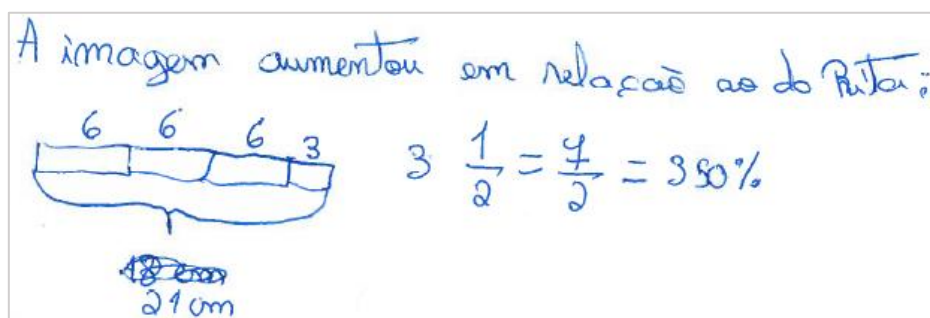 A imagem aumentou em relação ao do Rita:
6 6 6 3
3 1/2 = 7/2 = 350%
21 cm